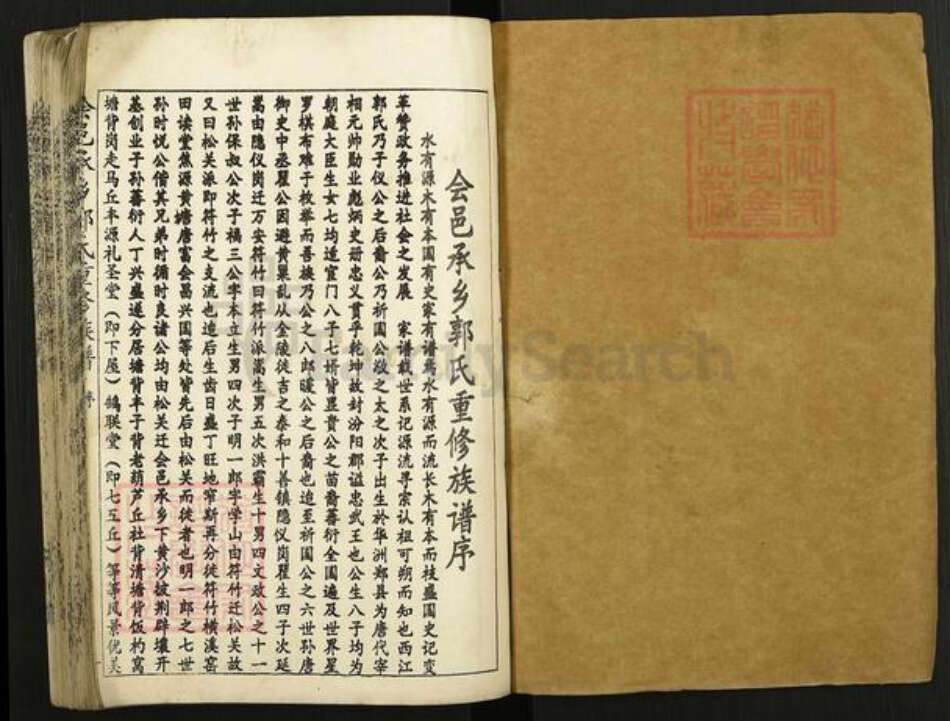 会邑承乡郭氏重修族谱序
水有源木有本国有史家有谱焉水有源而流长木有本而枝盛国史记变
革赞政务推进社会之发展 家谱载世系记源流寻宗认祖可朔而知也西江
郭氏乃子仪公之后裔公乃祈国公敬之太之次子出生於华洲郑县为唐代宰
相元帅勋业彪炳史册忠义贯乎乾坤故封汾阳郡谥忠武王也公生八子均为
朝庭大臣生女七均适宦门八子七婿皆显贵公之苗裔蕃衍全国遍及世界星
罗棋布难于枚举而吾族乃公之八郎暧公之后裔也追至祈国公之六世孙唐
御史中丞瞿公因避黄巢乱从金陵徒吉之泰和十善镇隐仪岗瞿生四子次延
嵩由隐仪岗迁万安符竹曰符竹派嵩生男五次洪霸生十男四文政公之十一
世孙保叔公次子福三公字本立生男四次子明一郎字学山由符竹迁松关故
又曰松关派即符竹之支流也迨后生齿日盛丁旺地窄斯再分徒符竹横溪窑
田读堂焦源黄塘唐富会昌兴国等处皆先后由松关而徒者也明一郎之七世
孙时悦公偕其兄弟时循时良诸公均由松关迁会邑承乡下黄沙披荆辟壤开
基创业子孙蕃衍人丁兴盛遂分居塘背丰子背老葫芦丘社背清塘背饭杓窝
塘背岗走马丘丰源礼圣堂（即下屋）鹄联堂（即七工丘）等等风景优美
会邑承乡郭氏重修族谱 序
FamilySearch